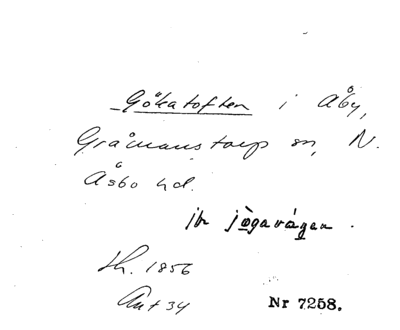 Gökatoften i Åby,
Gråmanstorps sn, N.
Åsbo hd.
jọgavägen.
Lh. 1856
Ant 34
Nr 7258.